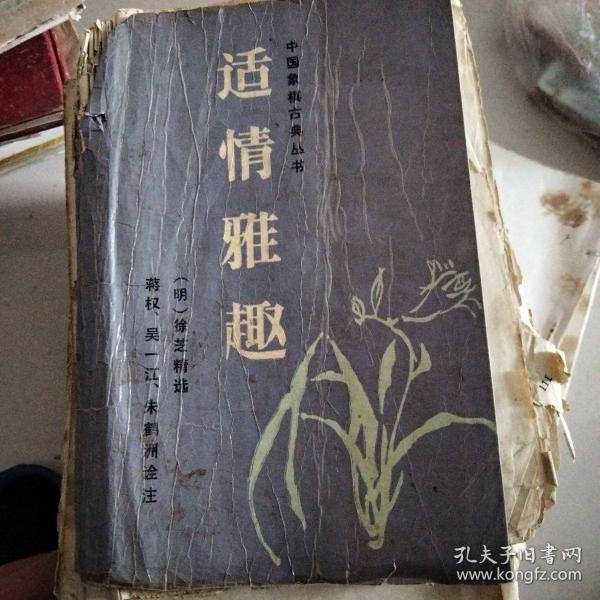 中国象棋古典丛书
适情雅趣
(明)徐芝精选
蒋权、吴一江、朱鹤洲诠注
111
孔夫子旧書网
www.kongfz.com